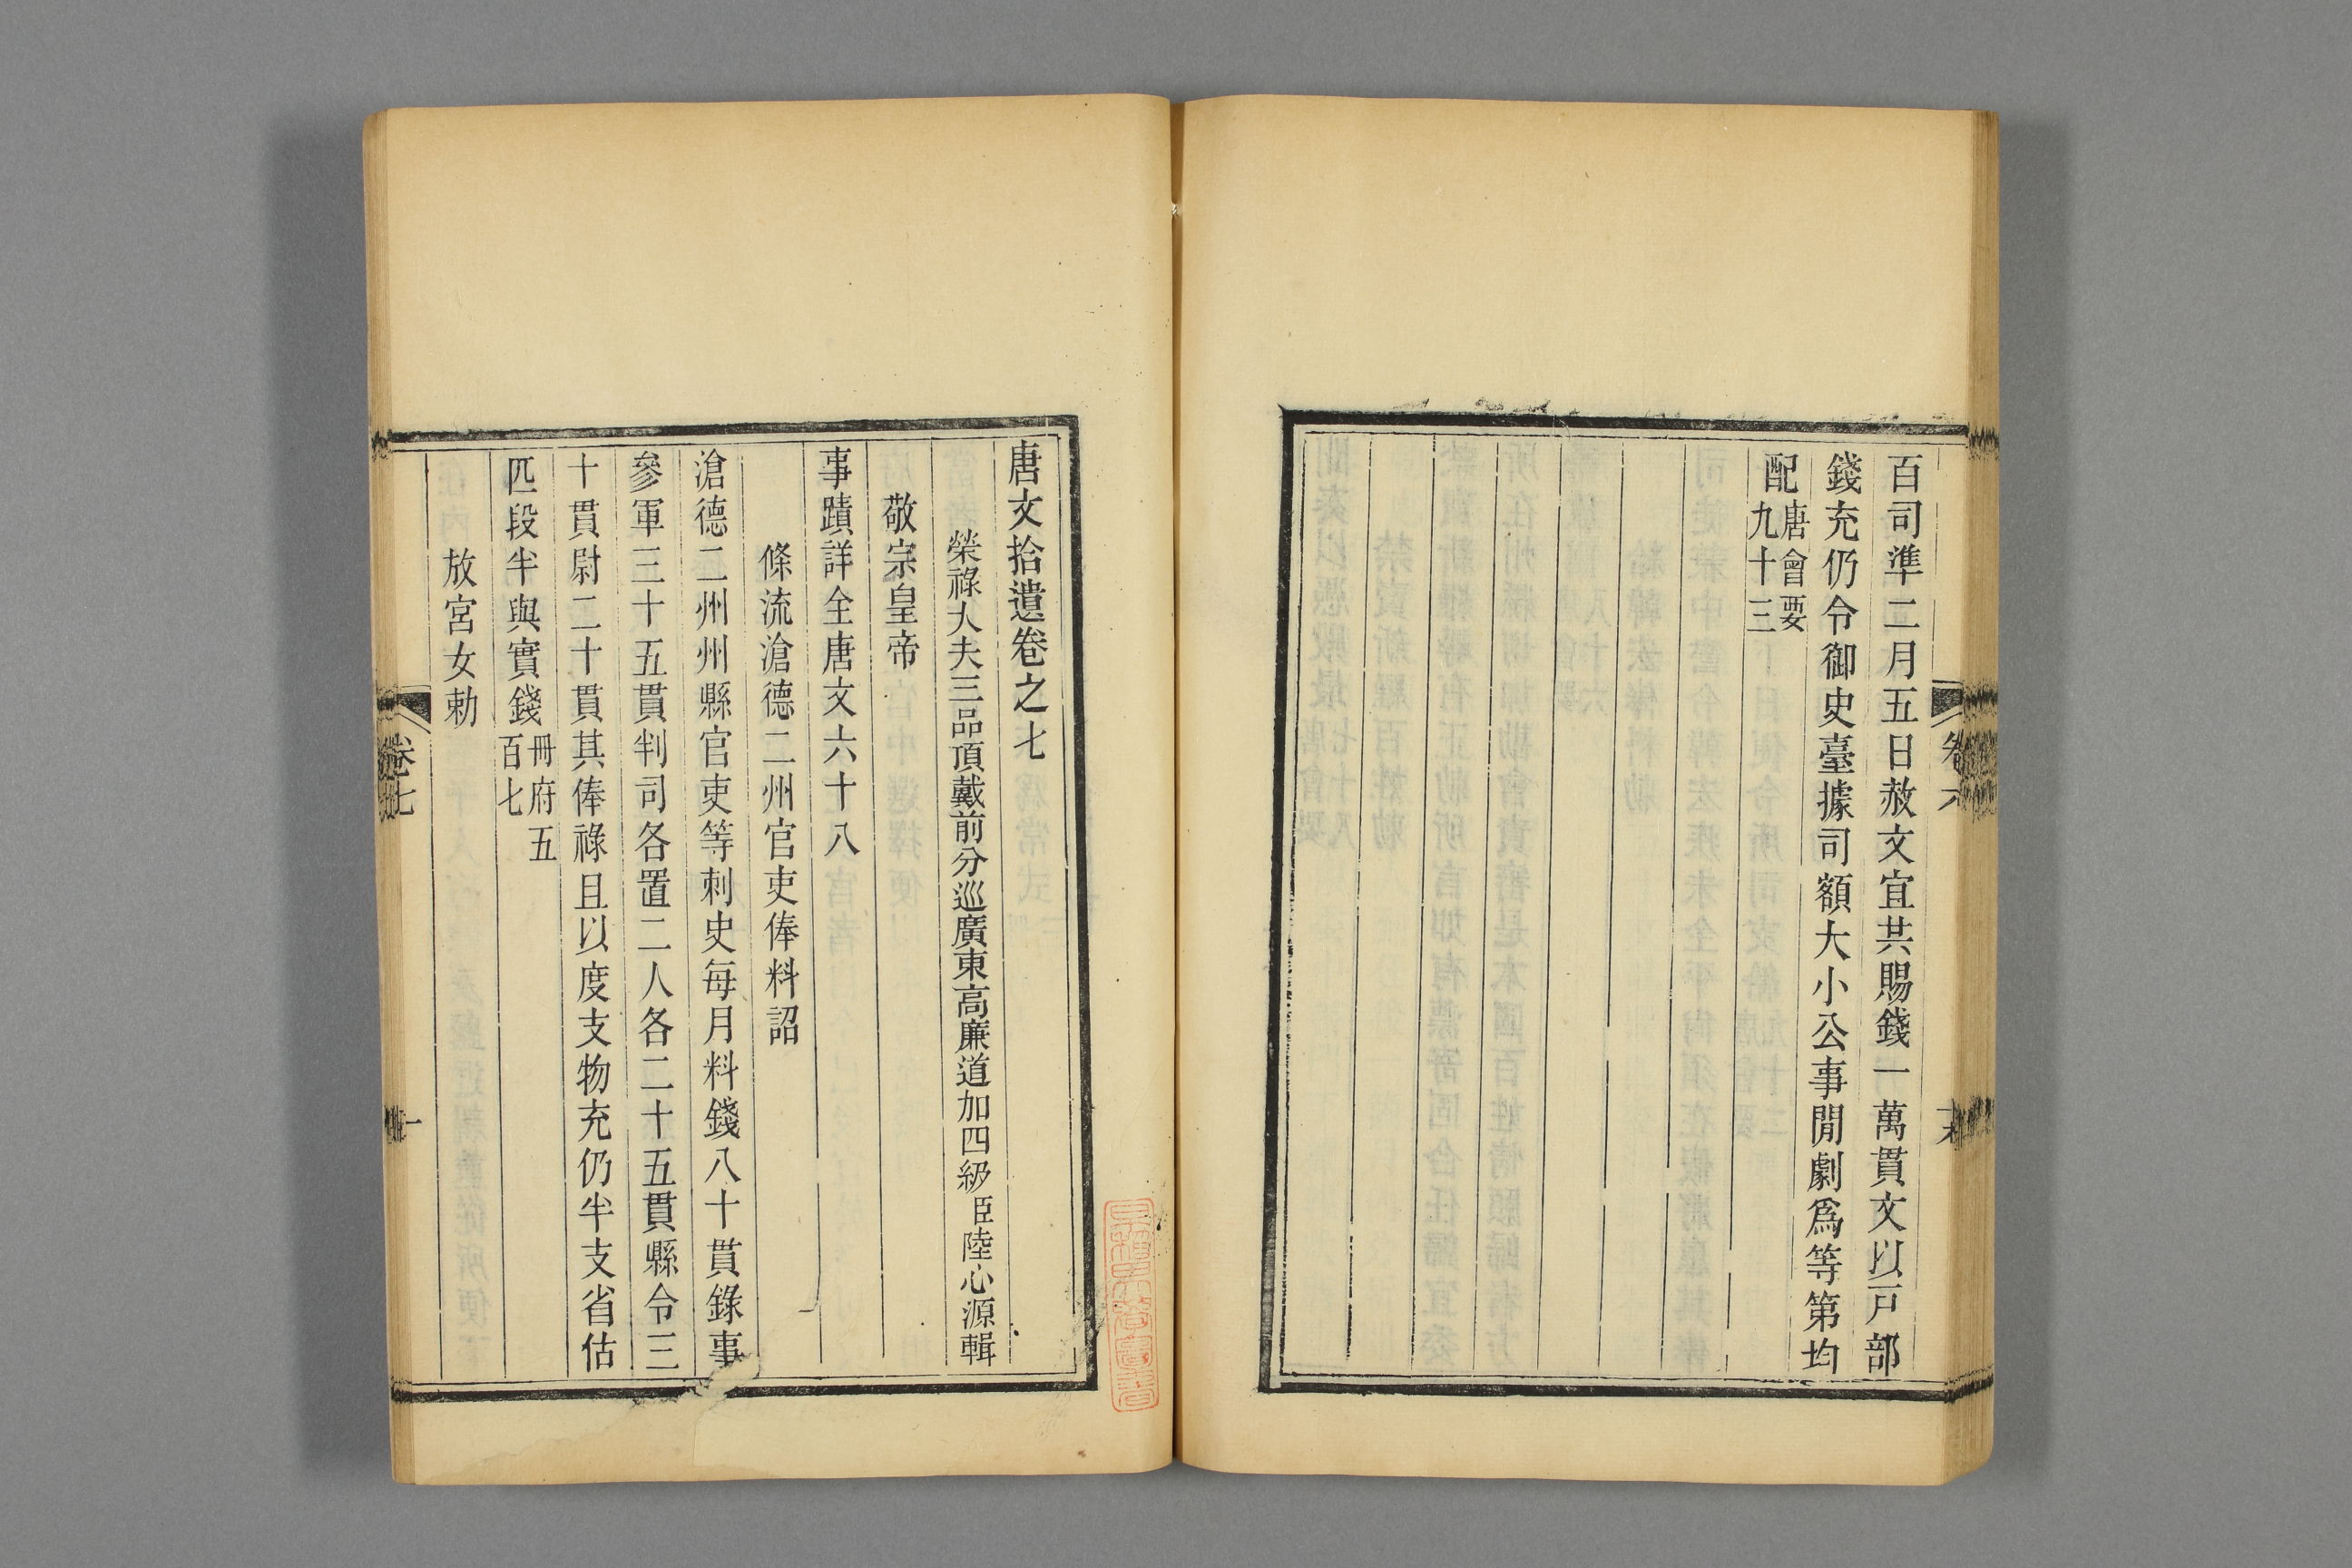 百司準二月五日赦文宜共賜錢一萬貫文以戸部
錢充仍令御史臺據司額大小公事閒劇爲等第均
配唐會要
九十三
卷六
唐文拾遺卷之七
榮祿大夫三品頂戴前分巡廣東高廉道加四級臣陸心源輯
敬宗皇帝
事蹟詳全唐文六十八
條流滄德二州官吏俸料詔
滄德二州州縣官吏等刺史每月料錢八十貫錄事
參軍三十五貫判司各置二人各二十五貫縣令三
十貫尉二十貫其俸祿且以度支物充仍半支省估
匹段半與實錢冊府五
百七
放宮女勅
卷七
一